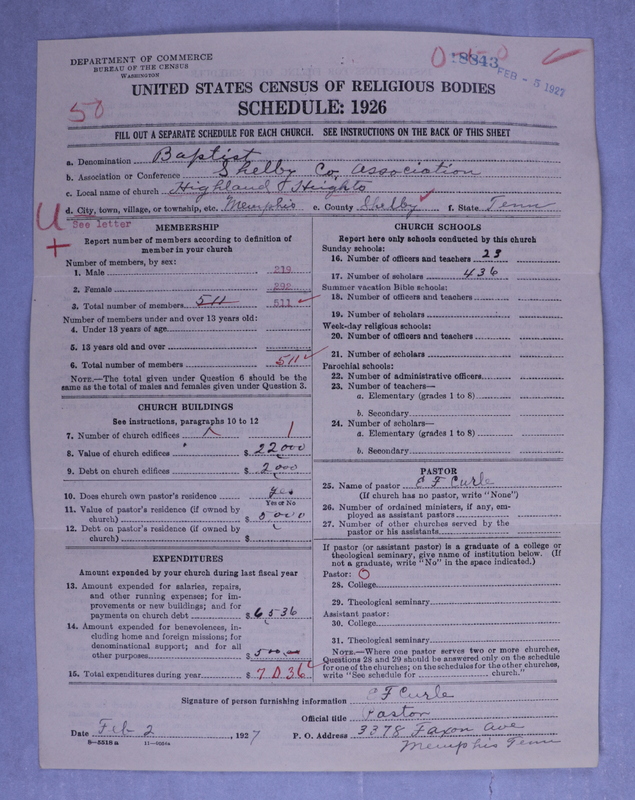 DEPARTMENT OF COMMERCE
BUREAU OF THE CENSUS
WASHINGTON
18843
FEB - 5 1927
58
UNITED STATES CENSUS OF RELIGIOUS BODIES
SCHEDULE: 1926
FILL OUT A SEPARATE SCHEDULE FOR EACH CHURCH. SEE INSTRUCTIONS ON THE BACK OF THIS SHEET
a. Denomination Baptist
b. Association or Conference Shelby Co. Association
c. Local name of church Highland Heights
d. City, town, village, or township, etc. Memphis e. County Shelby f. State Tenn
U
See letter
MEMBERSHIP
Report number of members according to definition of
member in your church
Number of members, by sex:
1. Male 219
2. Female 292
3. Total number of members 511 511
Number of members under and over 13 years old:
4. Under 13 years of age
5. 13 years old and over
6. Total number of members 511
NOTE.—The total given under Question 6 should be the
same as the total of males and females given under Question 3.
CHURCH BUILDINGS
See instructions, paragraphs 10 to 12
7. Number of church edifices 1
8. Value of church edifices $ 22000
9. Debt on church edifices $ 2000
10. Does church own pastor's residence yes
Yes or No
11. Value of pastor's residence (if owned by
church) $ 5000
12. Debt on pastor's residence (if owned by
church) $
EXPENDITURES
Amount expended by your church during last fiscal year
13. Amount expended for salaries, repairs,
and other running expenses; for im-
provements or new buildings; and for
payments on church debt $ 6536
14. Amount expended for benevolences, in-
cluding home and foreign missions; for
denominational support; and for all
other purposes $ 500
15. Total expenditures during year $ 7036
CHURCH SCHOOLS
Report here only schools conducted by this church
Sunday schools:
16. Number of officers and teachers 23
17. Number of scholars 436
Summer vacation Bible schools:
18. Number of officers and teachers
19. Number of scholars
Week-day religious schools:
20. Number of officers and teachers
21. Number of scholars
Parochial schools:
22. Number of administrative officers
23. Number of teachers—
a. Elementary (grades 1 to 8)
b. Secondary
24. Number of scholars—
a. Elementary (grades 1 to 8)
b. Secondary
PASTOR
25. Name of pastor C F Curle
(If church has no pastor, write "None")
26. Number of ordained ministers, if any, em-
ployed as assistant pastors
27. Number of other churches served by the
pastor or his assistants
If pastor (or assistant pastor) is a graduate of a college or
theological seminary, give name of institution below. (If
not a graduate, write "No" in the space indicated.)
Pastor: O
28. College
29. Theological seminary
Assistant pastor:
30. College
31. Theological seminary
NOTE.—Where one pastor serves two or more churches,
Questions 28 and 29 should be answered only on the schedule
for one of the churches; on the schedules for the other churches,
write "See schedule for church."
Signature of person furnishing information C F Curle
Official title Pastor
Date Feb 2, 1927 P. O. Address 3378 Faxon Ave
Memphis Tenn
8—5518 a